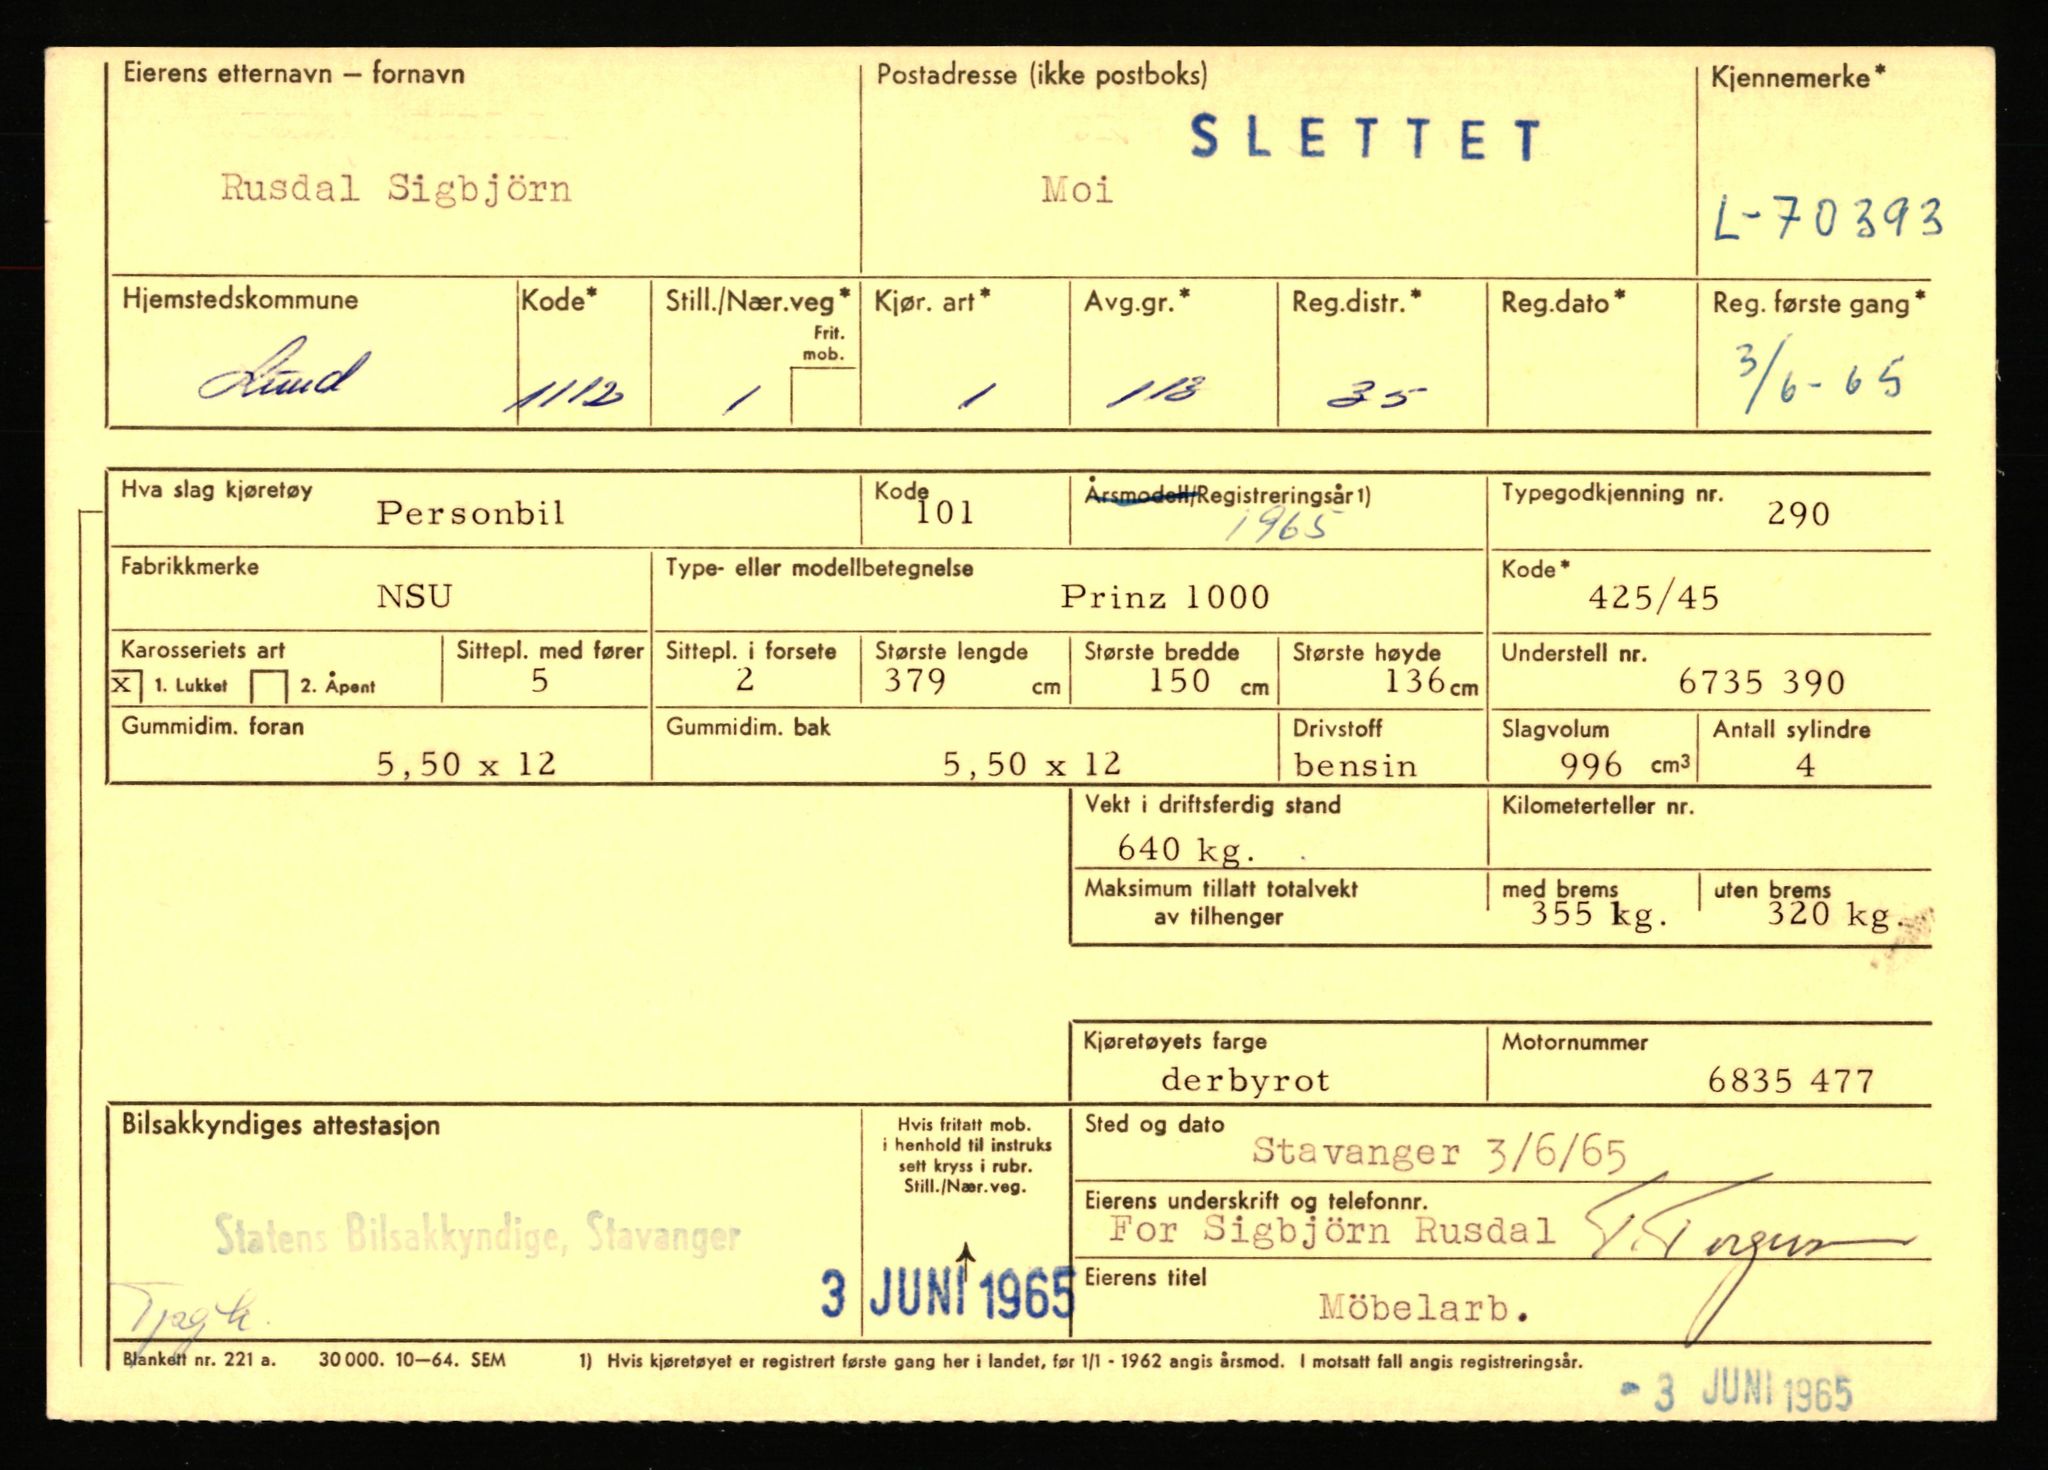 Eierens etternavn – fornavn
Postadresse (ikke postboks)
Kjennemerke*
SLETTET
Rusdal Sigbjörn
Moi
L-70393
Hjemstedskommune
Kode*
Still./Nær.veg*
Frit.
mob.
Kjør. art*
Avg.gr.*
Reg.distr.*
Reg.dato*
Reg. første gang*
Lund
1112
1
1
113
35
3/6-65
Hva slag kjøretøy
Personbil
Kode
101
Årsmodell/Registreringsår1)
1965
Typegodkjenning nr.
290
Fabrikkmerke
NSU
Type- eller modellbetegnelse
Prinz 1000
Kode*
425/45
Karosseriets art
x 1. Lukket 2. Åpent
Sittepl. med fører
5
Sittepl. i forsete
2
Største lengde
379 cm
Største bredde
150 cm
Største høyde
136 cm
Understell nr.
6735 390
Gummidim. foran
5,50 x 12
Gummidim. bak
5,50 x 12
Drivstoff
bensin
Slagvolum
996 cm³
Antall sylindre
4
Vekt i driftsferdig stand
640 kg.
Kilometerteller nr.
Maksimum tillatt totalvekt
av tilhenger
med brems
355 kg.
uten brems
320 kg.
Kjøretøyets farge
derbyrot
Motornummer
6835 477
Bilsakkyndiges attestasjon
Hvis fritatt mob.
i henhold til instruks
sett kryss i rubr.
Still./Nær.veg.
Sted og dato
Stavanger 3/6/65
Eierens underskrift og telefonnr.
For Sigbjörn Rusdal
Statens Bilsakkyndige, Stavanger
3 JUNI 1965
Eierens titel
Möbelarb.
Blankett nr. 221 a. 30 000. 10–64. SEM
1) Hvis kjøretøyet er registrert første gang her i landet, før 1/1 - 1962 angis årsmod. I motsatt fall angis registreringsår.
- 3 JUNI 1965